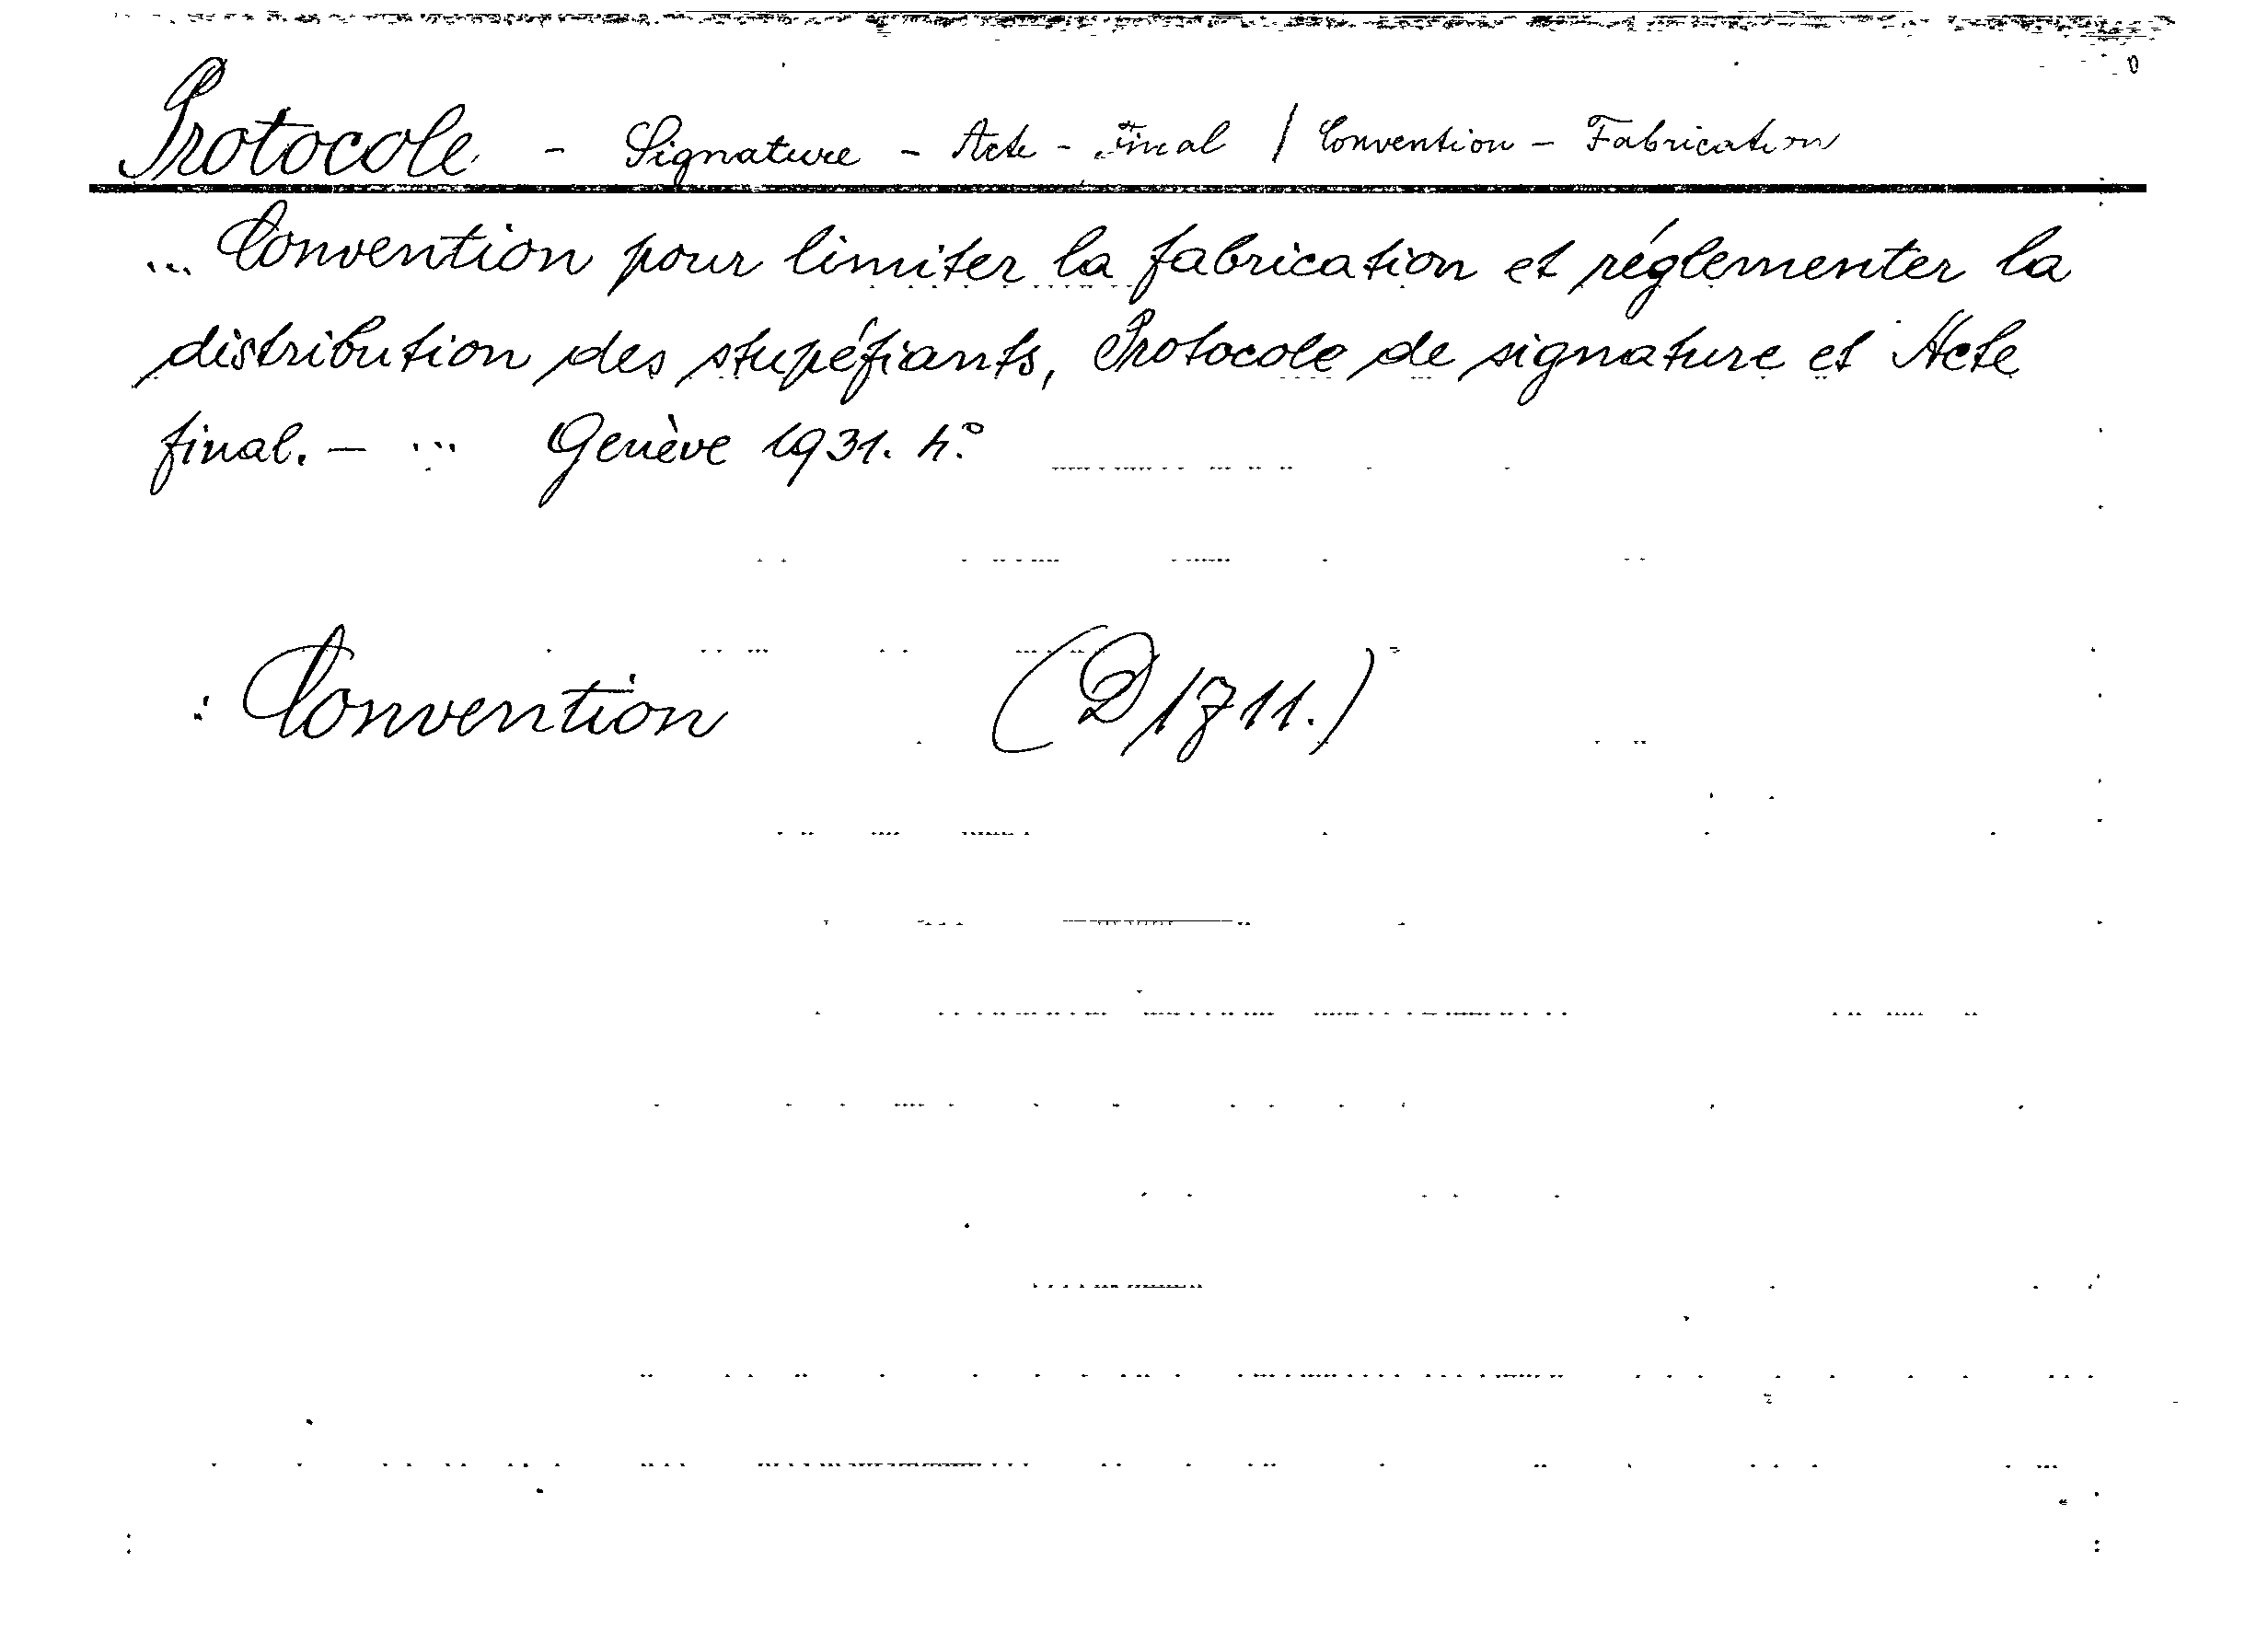 Protocole - Signature - Acte - Final / Convention - Fabrication
... Convention pour limiter la fabrication et réglementer la
distribution des stupéfiants, Protocole de signature et Acte
final. - ... Genève 1931. 4°.
: Convention (D 1711.)